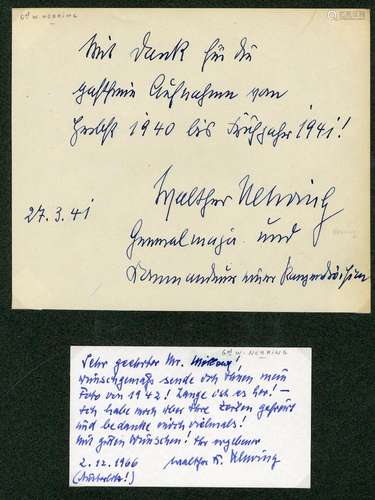 Gd W. NEHRING
Mit Dank für die
gastfreie Aufnahme vom
Herbst 1940 bis Frühjahr 1941!
27.3.41
Walther Nehring
Generalmajor und
Kommandeur einer Panzerdivision
Gd W. NEHRING
Sehr geehrter Mr.
wunschgemäß sende ich Ihnen mein
Foto von 1942! Lange ist es her! –
Ich habe mich über Ihre Zeilen gefreut
und bedanke mich vielmals!
Mit guten Wünschen! Ihr ergebener
2.12.1966 Walther K. Nehring